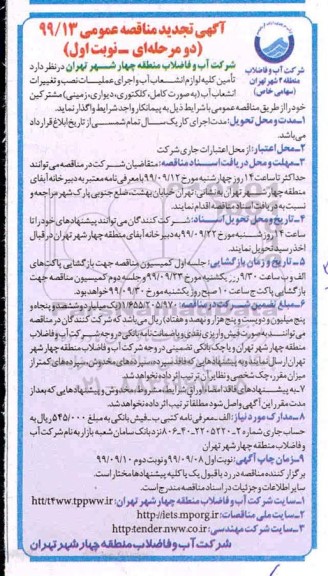 آگهی تجدید مناقصه عمومی ۹۹/۱۳
(دو مرحله‌ای - نوبت اول)
شرکت آب و فاضلاب
منطقه ۴ شهر تهران
(سهامی خاص)
شرکت آب و فاضلاب منطقه چهار شهر تهران در نظر دارد
تأمین کلیه لوازم انشعاب آب و اجرای عملیات نصب و تغییرات
انشعاب آب (به صورت کامل، کلکتوری، دیواری، زمینی) مشترکین
خود را از طریق مناقصه عمومی با شرایط ذیل به پیمانکار واجد شرایط واگذار نماید.
۱- مدت و محل تحویل: مدت اجرای کار یک سال تمام شمسی از تاریخ ابلاغ قرارداد
می‌باشد.
۲- محل اعتبار: از محل اعتبارات جاری شرکت
۳- مهلت و محل دریافت اسناد مناقصه: متقاضیان شرکت در مناقصه می‌توانند
حداکثر تا ساعت ۱۴ روز چهارشنبه مورخ ۹۹/۰۹/۱۲ با معرفی نامه معتبر به دبیرخانه آبفای
منطقه چهار شهر تهران به نشانی تهران خیابان بهشت، ضلع جنوبی پارک شهر مراجعه و
نسبت به دریافت اسناد مناقصه اقدام نمایند.
۴- تاریخ و محل تحویل اسناد: شرکت کنندگان می‌توانند پیشنهادهای خود را تا
ساعت ۱۴ روز شنبه مورخ ۹۹/۰۹/۲۲ به دبیرخانه آبفای منطقه چهار شهر تهران در قبال
اخذ رسید تحویل نمایند.
۵- تاریخ و زمان بازگشایی: جلسه اول کمیسیون مناقصه جهت بازگشایی پاکت‌های
الف و ب ساعت ۹/۳۰ روز یکشنبه مورخ ۹۹/۰۹/۲۳ و جلسه دوم کمیسیون مناقصه جهت
بازگشایی پاکت ج ساعت ۱۰ صبح روز یکشنبه مورخ ۹۹/۰۹/۳۰ خواهد بود.
۶- مبلغ تضمین شرکت در مناقصه: ۱/۶۵۵/۲۰۵/۹۷۰ (یک میلیارد و ششصد و پنجاه و
پنج میلیون و دویست و پنج هزار و نهصد و هفتاد) ریال می‌باشد که شرکت کنندگان در مناقصه
می‌توانند به صورت فیش واریز نقدی و یا ضمانت نامه بانکی در وجه شرکت آب و فاضلاب
منطقه چهار شهر تهران و یا چک بانکی تضمینی در وجه شرکت آب و فاضلاب منطقه چهار شهر
تهران ارسال نمایند و به پیشنهادهایی که فاقد سپرده، سپرده‌های مخدوش، سپرده‌های کمتر از
میزان مقرر، چک شخصی و نظایر آن ترتیب اثر داده نخواهد شد.
۷- به پیشنهادهای فاقد امضا و یا دارای شرایط، مشروط، مخدوش و پیشنهادهایی که بعد از
مدت مقرر این آگهی واصل شود مطلقا ترتیب اثر داده نخواهد شد.
۸- مدارک مورد نیاز: الف- معرفی نامه کتبی ب- فیش بانکی به مبلغ ۵۴۵/۰۰۰ ریال به
نزد بانک سامان شعبه بازار به نام شرکت آب
و فاضلاب منطقه چهار شهر تهران
۹- زمان چاپ آگهی: نوبت اول ۹۹/۰۹/۰۸ و نوبت دوم ۹۹/۰۹/۱۰
برگزار کننده مناقصه در رد یا قبول یک یا کلیه پیشنهادها مختار است.
سایر اطلاعات و جزئیات در اسناد مناقصه مندرج است.
۱- سایت شرکت آب و فاضلاب منطقه چهار شهر تهران: htt/t4ww.tppww.ir
۲- سایت ملی مناقصات: http://iets.mporg.ir
۳- سایت شرکت مهندسی: http:tender.nww.co.ir
شرکت آب و فاضلاب منطقه چهار شهر تهران